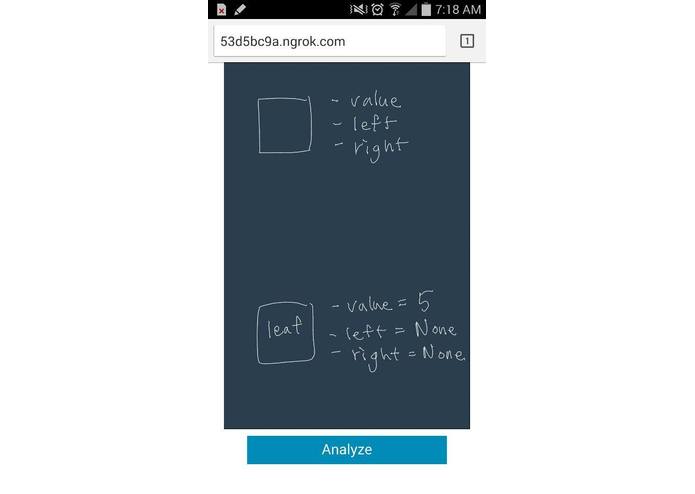 7:18 AM
53d5bc9a.ngrok.com
1
- value
- left
- right
leaf
- value = 5
- left = None
- right = None
Analyze